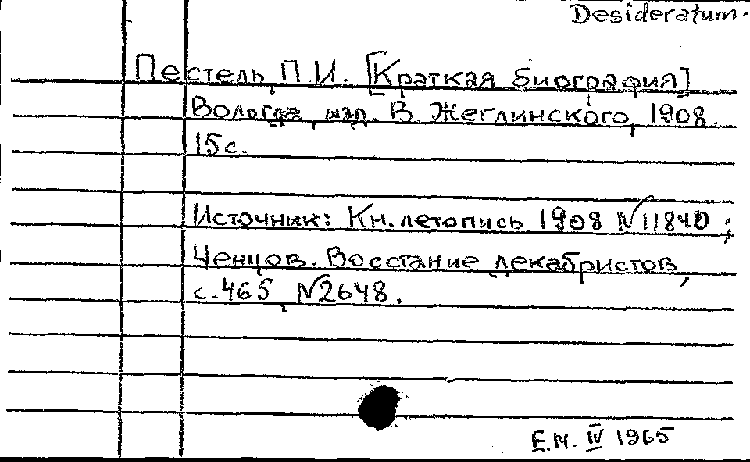 Desideratum.
Пестель, П.И. [Краткая биография]
Вологда, изд. В. Жеглинского, 1908.
15 с.
Источник: Кн. летопись 1908 №11840;
Ченцов. Восстание декабристов,
с. 465, №2648.
Е.Н. IV 1965